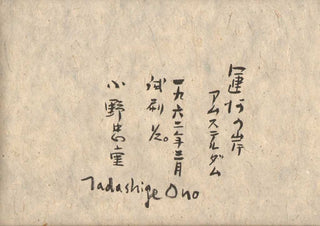 運河の岸
アムステルダム
一九六二年三月
試刷 1/2。
小野忠重
Tadashige Ono